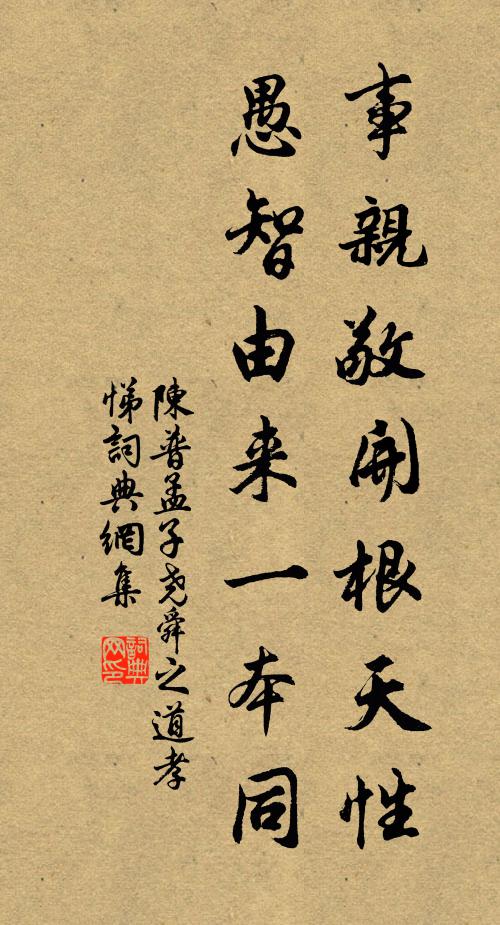 事親敬開根天性
愚智由来一本同
陳普孟子堯舜之道孝
悌詞典網集
詞典
网印